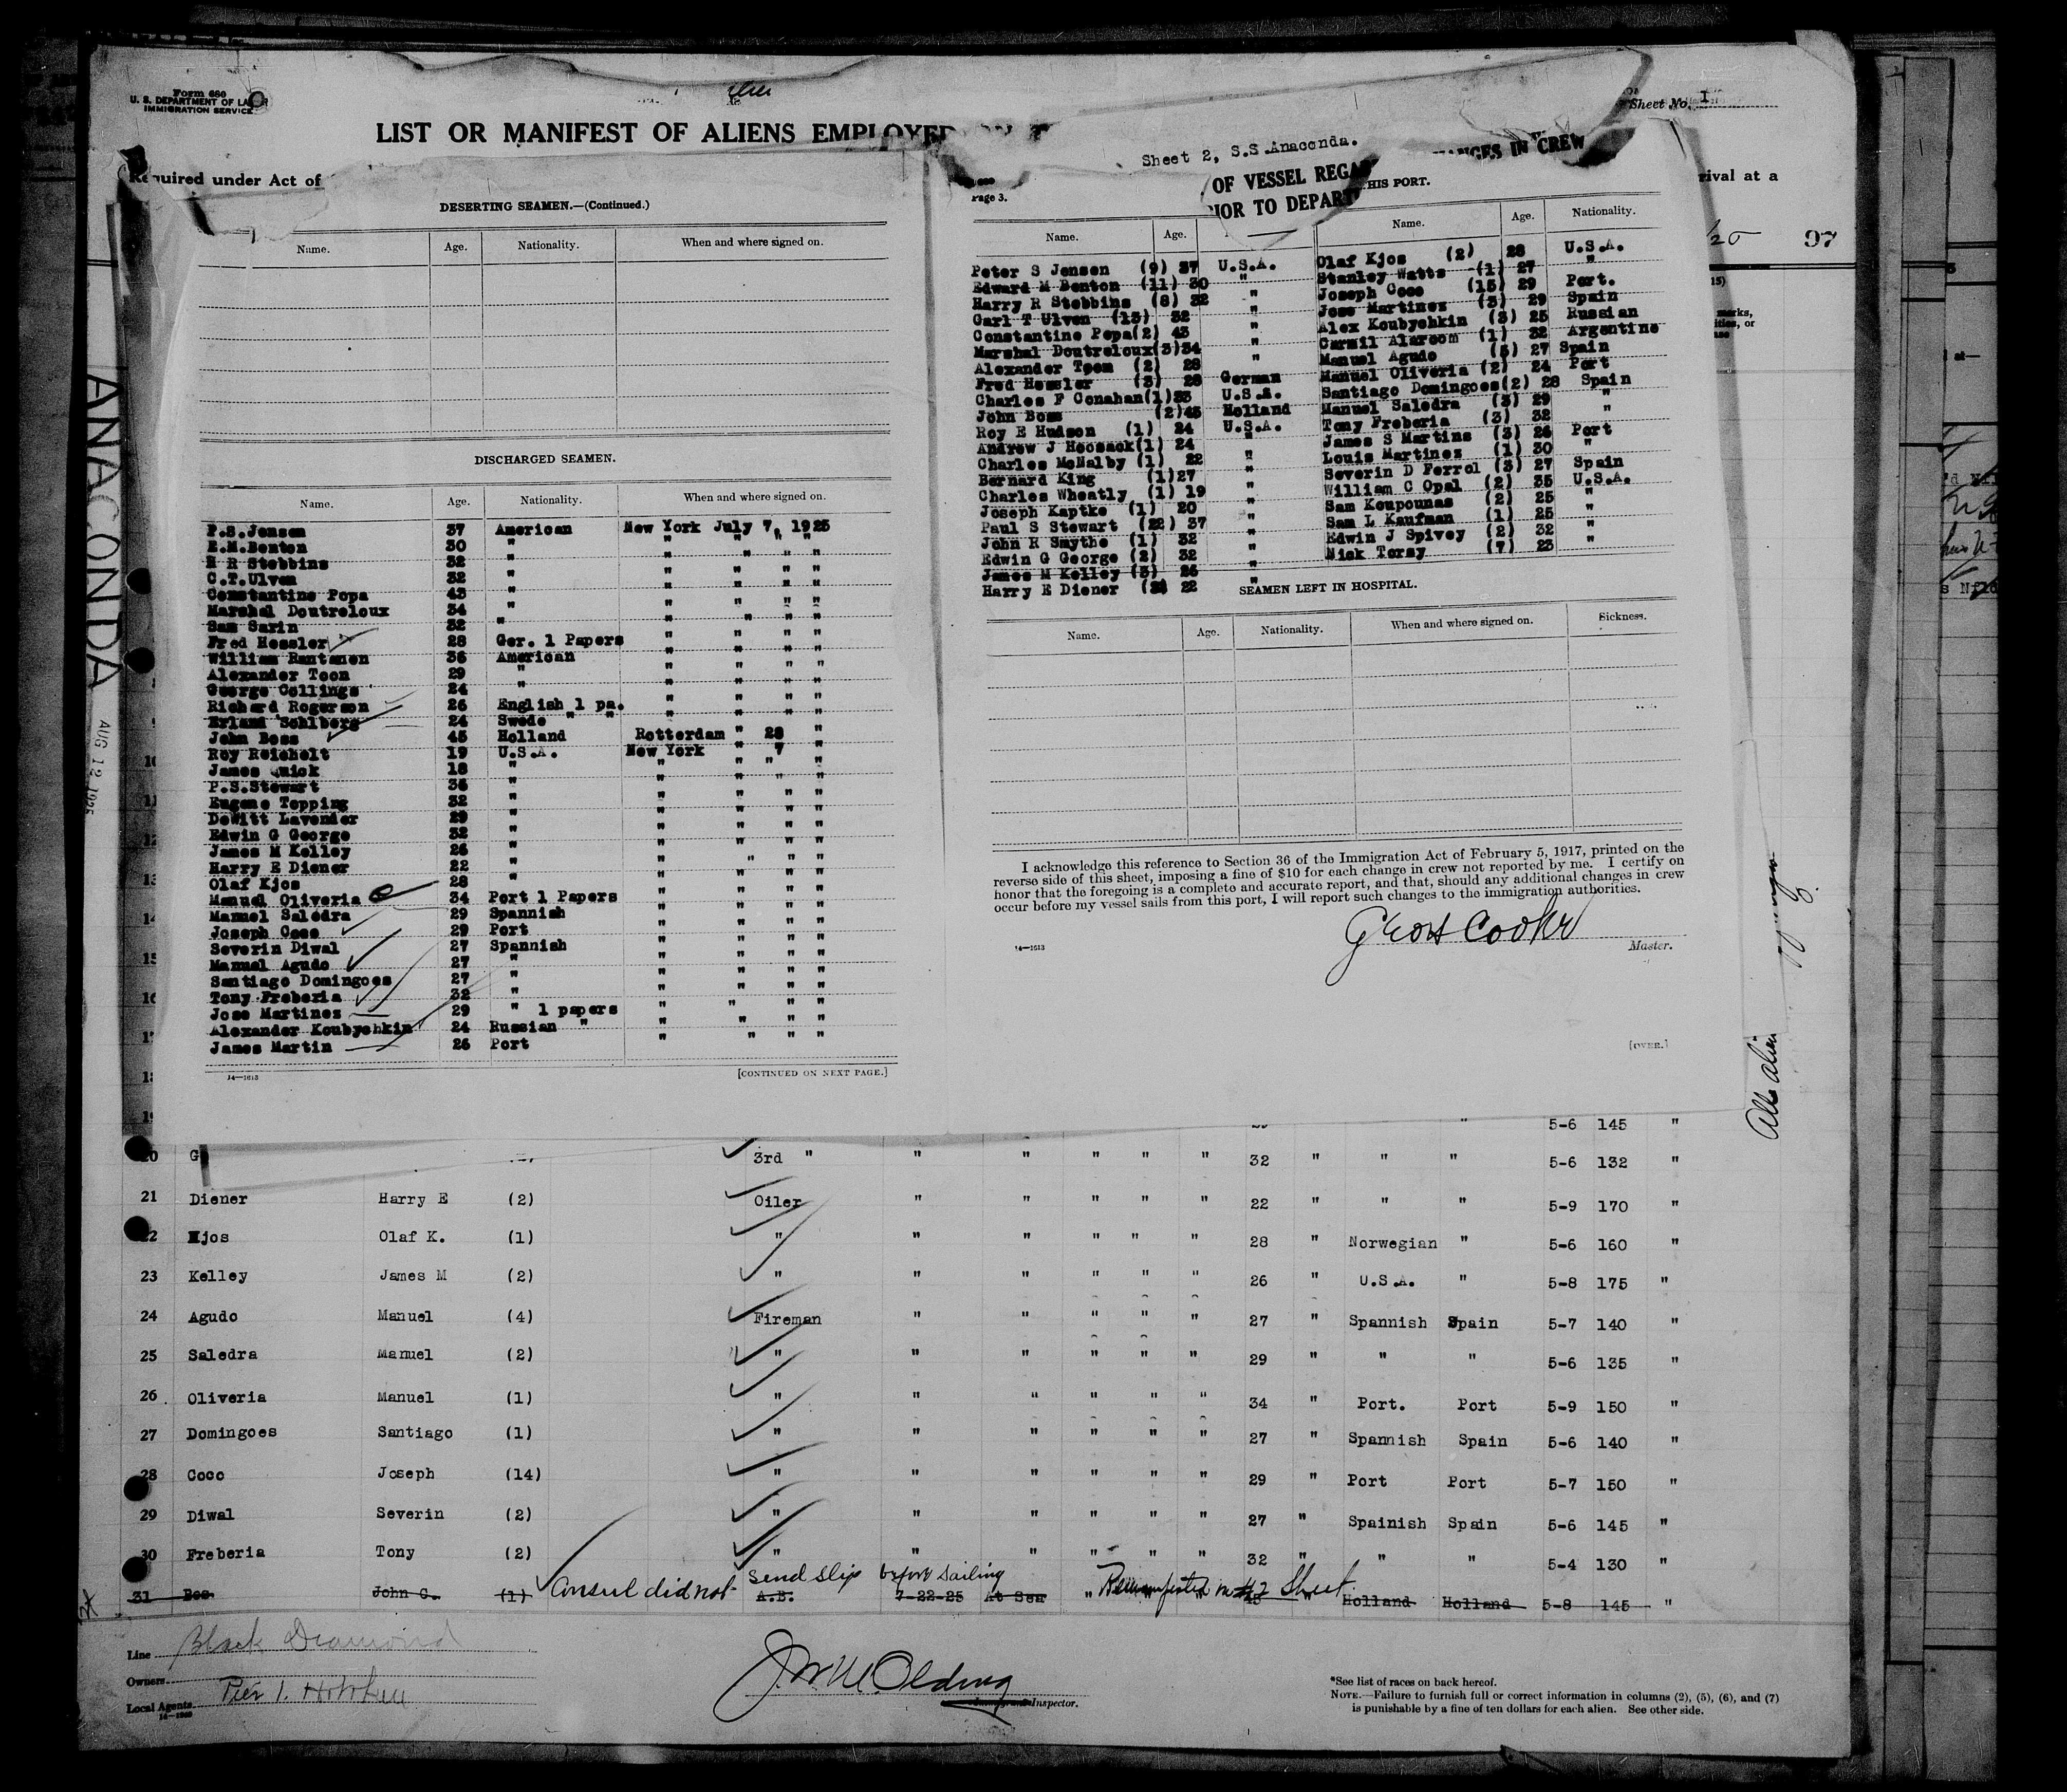 Form 680
U. S. DEPARTMENT OF LABOR
IMMIGRATION SERVICE
Sheet No. 1
LIST OR MANIFEST OF ALIENS EMPLOYED
Required under Act of
rival at a
97
ANACONDA
AUG 12 1925
DESERTING SEAMEN.—(Continued.)
Name. Age. Nationality. When and where signed on.
DISCHARGED SEAMEN.
Name. Age. Nationality. When and where signed on.
P.S.Jensen 37 American New York July 7, 1925
E.M.Benton 30 " " " " "
H R Stebbins 32 " " " " "
C.T.Ulven 32 " " " " "
Constantine Popa 43 " " " " "
Marshal Doutreloux 34 " " " " "
Sam Sarin 32 " " " " "
Fred Hessler 28 Ger. 1 Papers " " " "
William Rantanen 36 American " " " "
Alexander Toon 29 " " " " "
George Collings 24 " " " " "
Richard Rogerson 26 English 1 pa. " " " "
Erland Sohlberg 24 Swede " " " " " "
John Boss 45 Holland Rotterdam " 28 "
Roy Reichelt 19 U.S.A. New York " 7 "
James Quick 18 " " " " "
P.S.Stewart 36 " " " " "
Eugene Topping 32 " " " " "
DeWitt Lavender 29 " " " " "
Edwin G George 32 " " " " "
James M Kelley 26 " " " " "
Harry E Diener 22 " " " " "
Olaf Kjos 28 " " " " "
Manuel Oliveria 34 Port 1 Papers " " " "
Manuel Saledra 29 Spannish " " " "
Joseph Coco 29 Port " " " "
Severin Diwal 27 Spannish " " " "
Manuel Agudo 27 " " " " "
Santiago Domingoes 27 " " " " "
Tony Freberia 32 " " " " "
Jose Martines 29 " 1 papers " " " "
Alexander Koubyshkin 24 Russian " " " " "
James Martin 26 Port " " " "
14—1613
[CONTINUED ON NEXT PAGE.]
Sheet 2, S.S.Anaconda.
Page 3.
OF VESSEL REGA ANGES IN CREW
IOR TO DEPART HIS PORT.
Name. Age. Name. Age. Nationality.
Peter S Jensen (9) 37 U.S.A. Olaf Kjos (2) 28 U.S.A.
Edward M Benton (11) 30 " Stanley Watts (1) 27 "
Harry R Stebbins (8) 32 " Joseph Coco (15) 29 Port.
Carl T Ulven (13) 32 " Jose Martines (3) 29 Spain
Constantine Popa(2) 43 " Alex Koubyshkin (3) 25 Russian
Marshal Doutreloux(3)34 " Carmil Alarcom (1) 32 Argentine
Alexander Toon (2) 28 " Manuel Agudo (5) 27 Spain
Fred Hessler (3) 28 German Manuel Oliveria (2) 24 Port
Charles F Conahan(1)33 U.S.A. Santiago Domingoes(2) 28 Spain
John Boss (2)45 Holland Manuel Saledra (3) 29 "
Roy E Hudson (1) 24 U.S.A. Tony Freberia (3) 32 "
Andrew J Hocsack(1) 24 " James S Martins (3) 26 Port
Charles McNalby (1) 22 " Louis Martines (1) 30 "
Bernard King (1)27 " Severin D Ferrol (3) 27 Spain
Charles Wheatly (1) 19 " William C Opal (2) 35 U.S.A.
Joseph Kaptke (1) 20 " Sam Koupounas (2) 25 "
Paul S Stewart (22) 37 " Sam L Kaufman (1) 25 "
John R Smythe (1) 32 " Edwin J Spivey (2) 32 "
Edwin G George (2) 32 " Nick Torsy (7) 23 "
James M Kelley (3) 26 "
Harry E Diener 22 "
SEAMEN LEFT IN HOSPITAL.
Name. Age. Nationality. When and where signed on. Sickness.
I acknowledge this reference to Section 36 of the Immigration Act of February 5, 1917, printed on the
reverse side of this sheet, imposing a fine of $10 for each change in crew not reported by me. I certify on
honor that the foregoing is a complete and accurate report, and that, should any additional changes in crew
occur before my vessel sails from this port, I will report such changes to the immigration authorities.
Geo H Cooke
14—1613
Master.
[OVER.]
All alien
" 5-6 145 "
20 G 3rd " " " " " " 32 " " " 5-6 132 "
21 Diener Harry E (2) Oiler " " " " " 22 " " " 5-9 170 "
22 Kjos Olaf K. (1) " " " " " " 28 " Norwegian " 5-6 160 "
23 Kelley James M (2) " " " " " " 26 " U.S.A. " 5-8 175 "
24 Agudo Manuel (4) Fireman " " " " " 27 " Spannish Spain 5-7 140 "
25 Saledra Manuel (2) " " " " " " 29 " " " 5-6 135 "
26 Oliveria Manuel (1) " " " " " " 34 " Port. Port 5-9 150 "
27 Domingoes Santiago (1) " " " " " " 27 " Spannish Spain 5-6 140 "
28 Coco Joseph (14) " " " " " " 29 " Port Port 5-7 150 "
29 Diwal Severin (2) " " " " " " 27 " Spainish Spain 5-6 145 "
30 Freberia Tony (2) " " " " " " 32 " " " 5-4 130 "
Consul did not send slip before sailing Remanifested on #2 Sheet
31 Bos John C. (1) A.B. 7-22-25 At Sea " 45 " Holland Holland 5-8 145 "
Line Black Diamond
Owners
Local Agents Pier 1. Hoboken
14—1260
Inspector.
*See list of races on back hereof.
NOTE.—Failure to furnish full or correct information in columns (2), (5), (6), and (7)
is punishable by a fine of ten dollars for each alien. See other side.